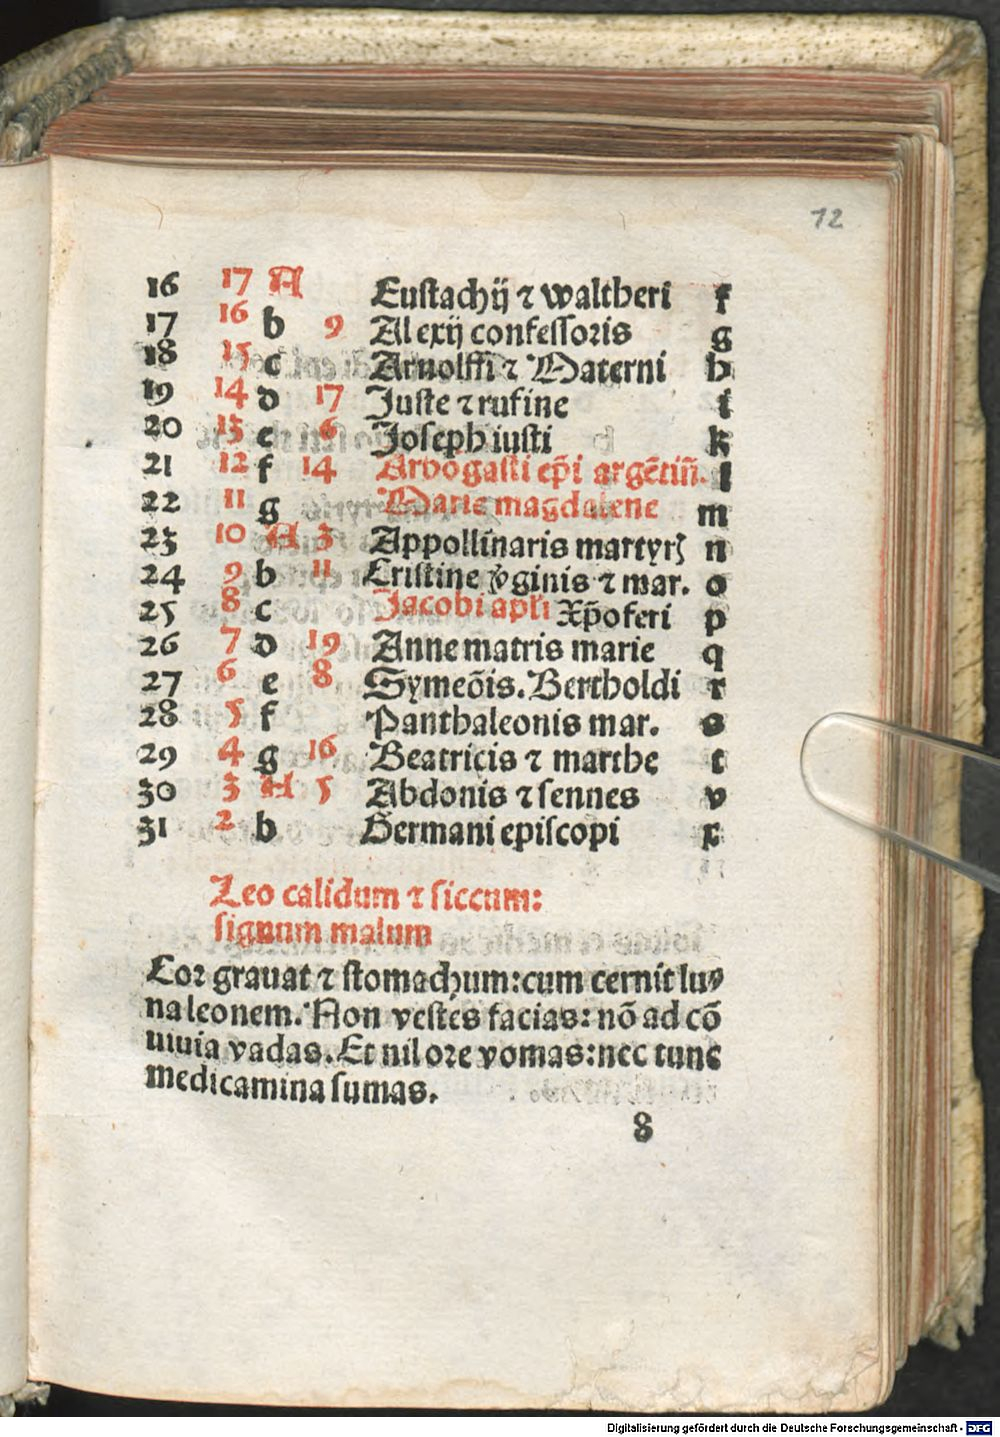 12
16 17 A Eustachij ⁊ waltheri f
17 16 b 9 Alexij confessoris g
18 15 c Arnolffi ⁊ Materni h
19 14 d 17 Juste ⁊ rufine i
20 13 e 6 Joseph iusti k
21 12 f 14 Arbogasti ep̄i argētiñ. l
22 11 g Marie magdalene m
23 10 A 3 Appollinaris martyrꝫ n
24 9 b 11 Cristine v̓ginis ⁊ mar. o
25 8 c Jacobi apl̄i Xp̄oferi p
26 7 d 19 Anne matris marie q
27 6 e 8 Symeōis. Bertholdi r
28 5 f Panthaleonis mar. s
29 4 g 16 Beatricis ⁊ marthe t
30 3 A 5 Abdonis ⁊ sennes v
31 2 b Germani episcopi x
Leo calidum ⁊ siccum:
signum malum
Cor grauat ⁊ stomachum: cum cernit lu⸗
na leonem. Non vestes facias: nō ad cō
uiuia vadas. Et nil ore vomas: nec tunc
medicamina sumas.
8
Digitalisierung gefördert durch die Deutsche Forschungsgemeinschaft - DFG